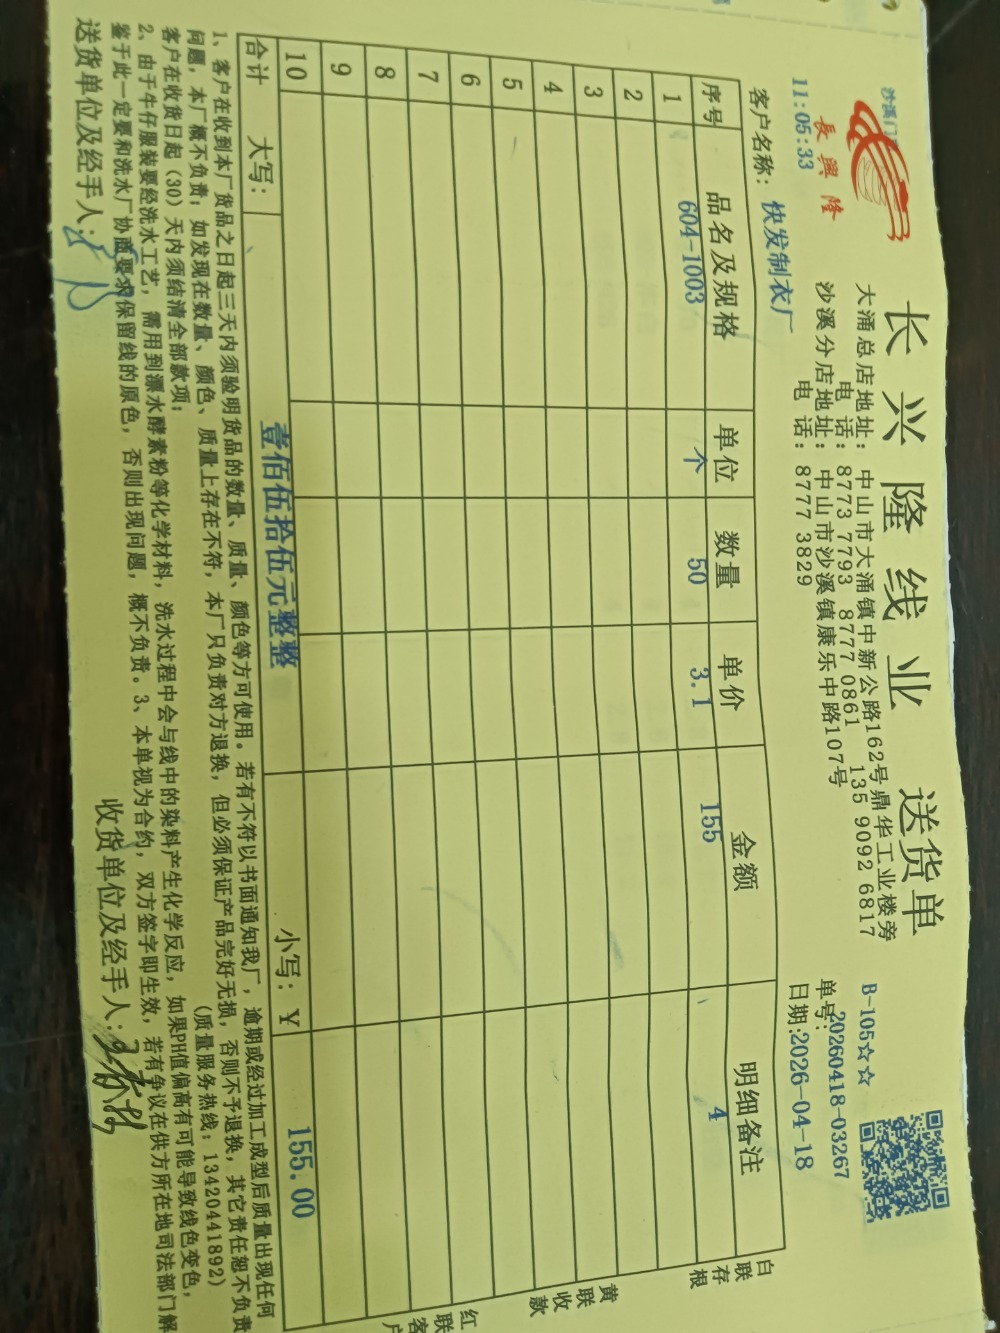 長興隆
长兴隆线业 送货单
沙溪门
11:05:33
大涌总店地址：中山市大涌镇中新公路162号鼎华工业楼旁
电话：8773 7793 8777 0861 135 9092 6817
沙溪分店地址：中山市沙溪镇康乐中路107号
电话：8777 3829
B-105☆☆
单号：20260418-03267
日期：2026-04-18
客户名称：快发制衣厂
序号 品名及规格 单位 数量 单价 金额 明细备注
1 604-1003 个 50 3.1 155 4
2
3
4
5
6
7
8
9
10
合计 大写：壹佰伍拾伍元整整 小写：￥ 155.00
白联存根
黄联收款
红联客户
1、客户在收到本厂货品之日起三天内须验明货品的数量、质量、颜色等方可使用。若有不符以书面通知我厂，逾期或经过加工成型后质量出现任何
问题，本厂概不负责；如发现在数量、颜色、质量上存在不符，本厂只负责对方退换，但必须保证产品完好无损，否则不予退换，其它责任恕不负责
客户在收货日起（30）天内须结清全部款项； （质量服务热线：13420441892）
2、由于牛仔服装要经洗水工艺，需用到漂水酵素粉等化学材料，洗水过程中会与线中的染料产生化学反应，如果PH值偏高有可能导致线色变色，
鉴于此一定要和洗水厂协商要求保留线的原色，否则出现问题，概不负责。3、本单视为合约，双方签字即生效，若有争议在供方所在地司法部门解
送货单位及经手人： 收货单位及经手人：